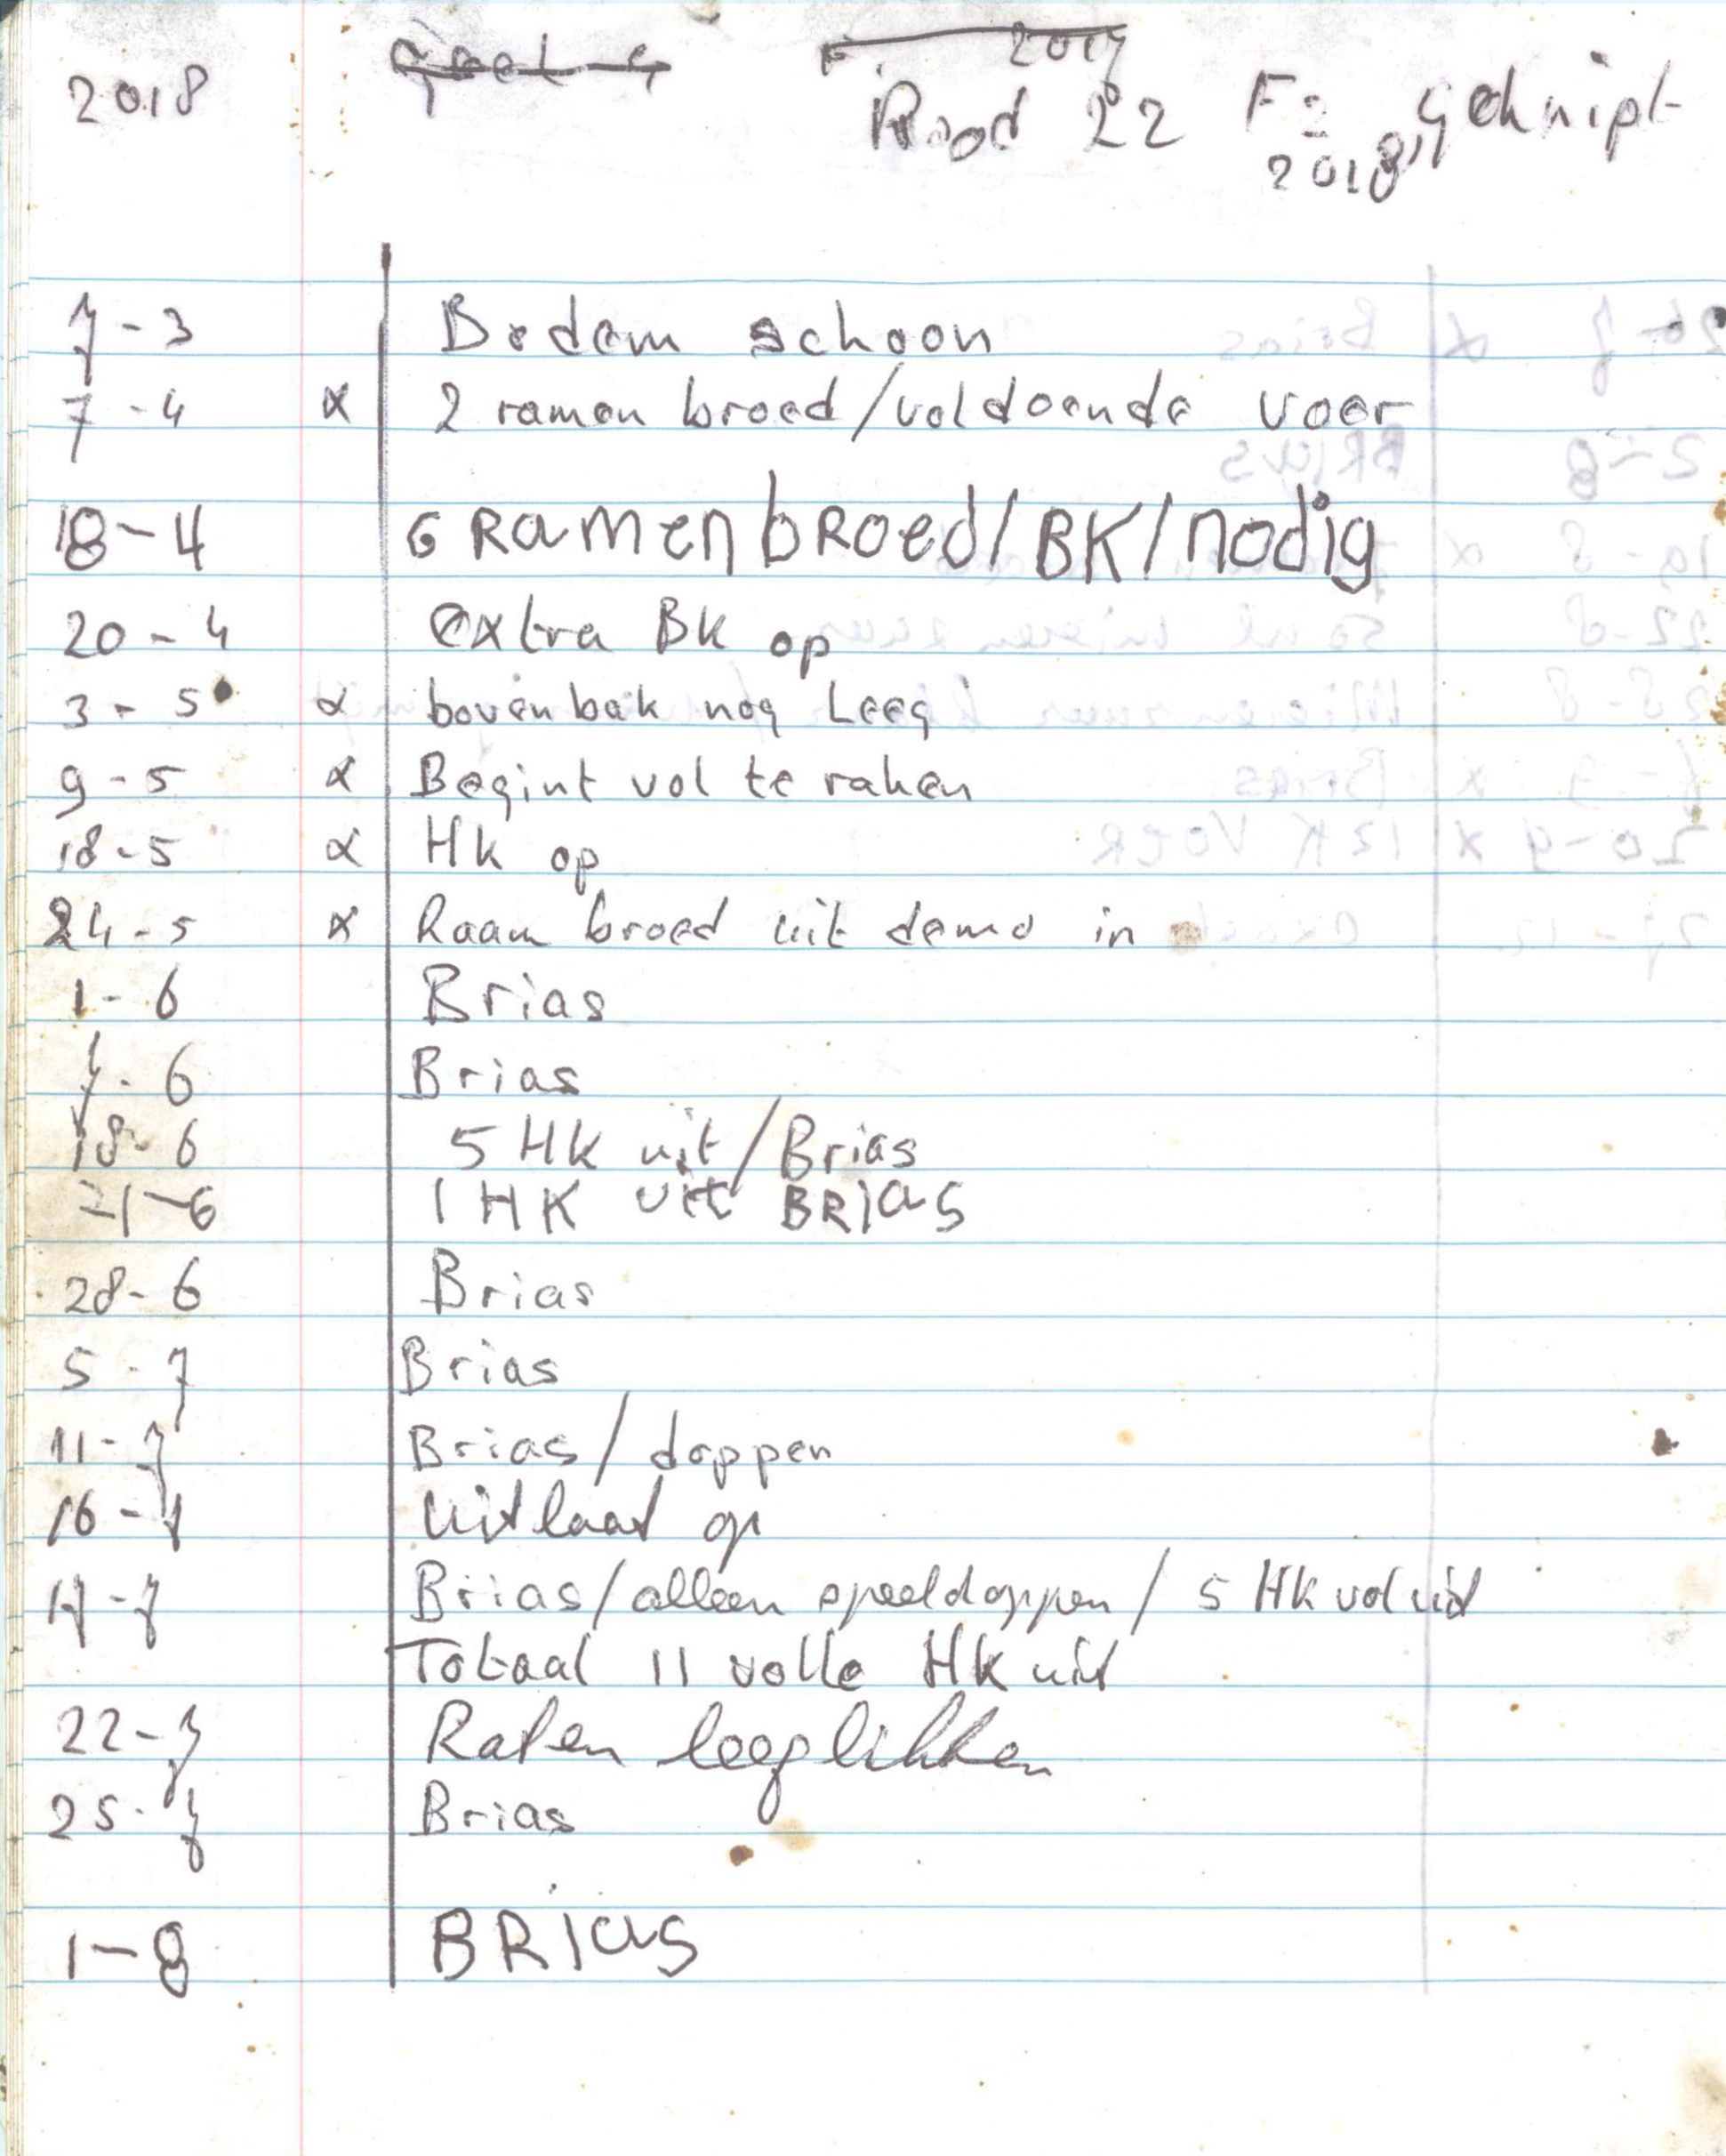 2018 geel 4 F. 2017
Rood 22 F2 geknipt
2018
7-3 Bodem schoon
7-4 x 2 ramen broed/voldoende voer
18-4 6 Ramen bRoed/BK/nodig
20-4 extra Bk op
3-5 x bovenbak nog Leeg
9-5 x Begint vol te raken
18-5 x Hk op
24-5 x Raam broed uit demo in
1-6 Brias
7-6 Brias
18-6 5 Hk uit/Brias
21-6 1 HK uit BRIAS
28-6 Brias
5-7 Brias
11-7 Brias/doppen
16-7 Uitlaat op
17-7 Brias/alleen speeldoppen/ 5 Hk vol uit
Totaal 11 volle Hk uit
22-7 Raten leeglikken
25-7 Brias
1-8 BRIAS